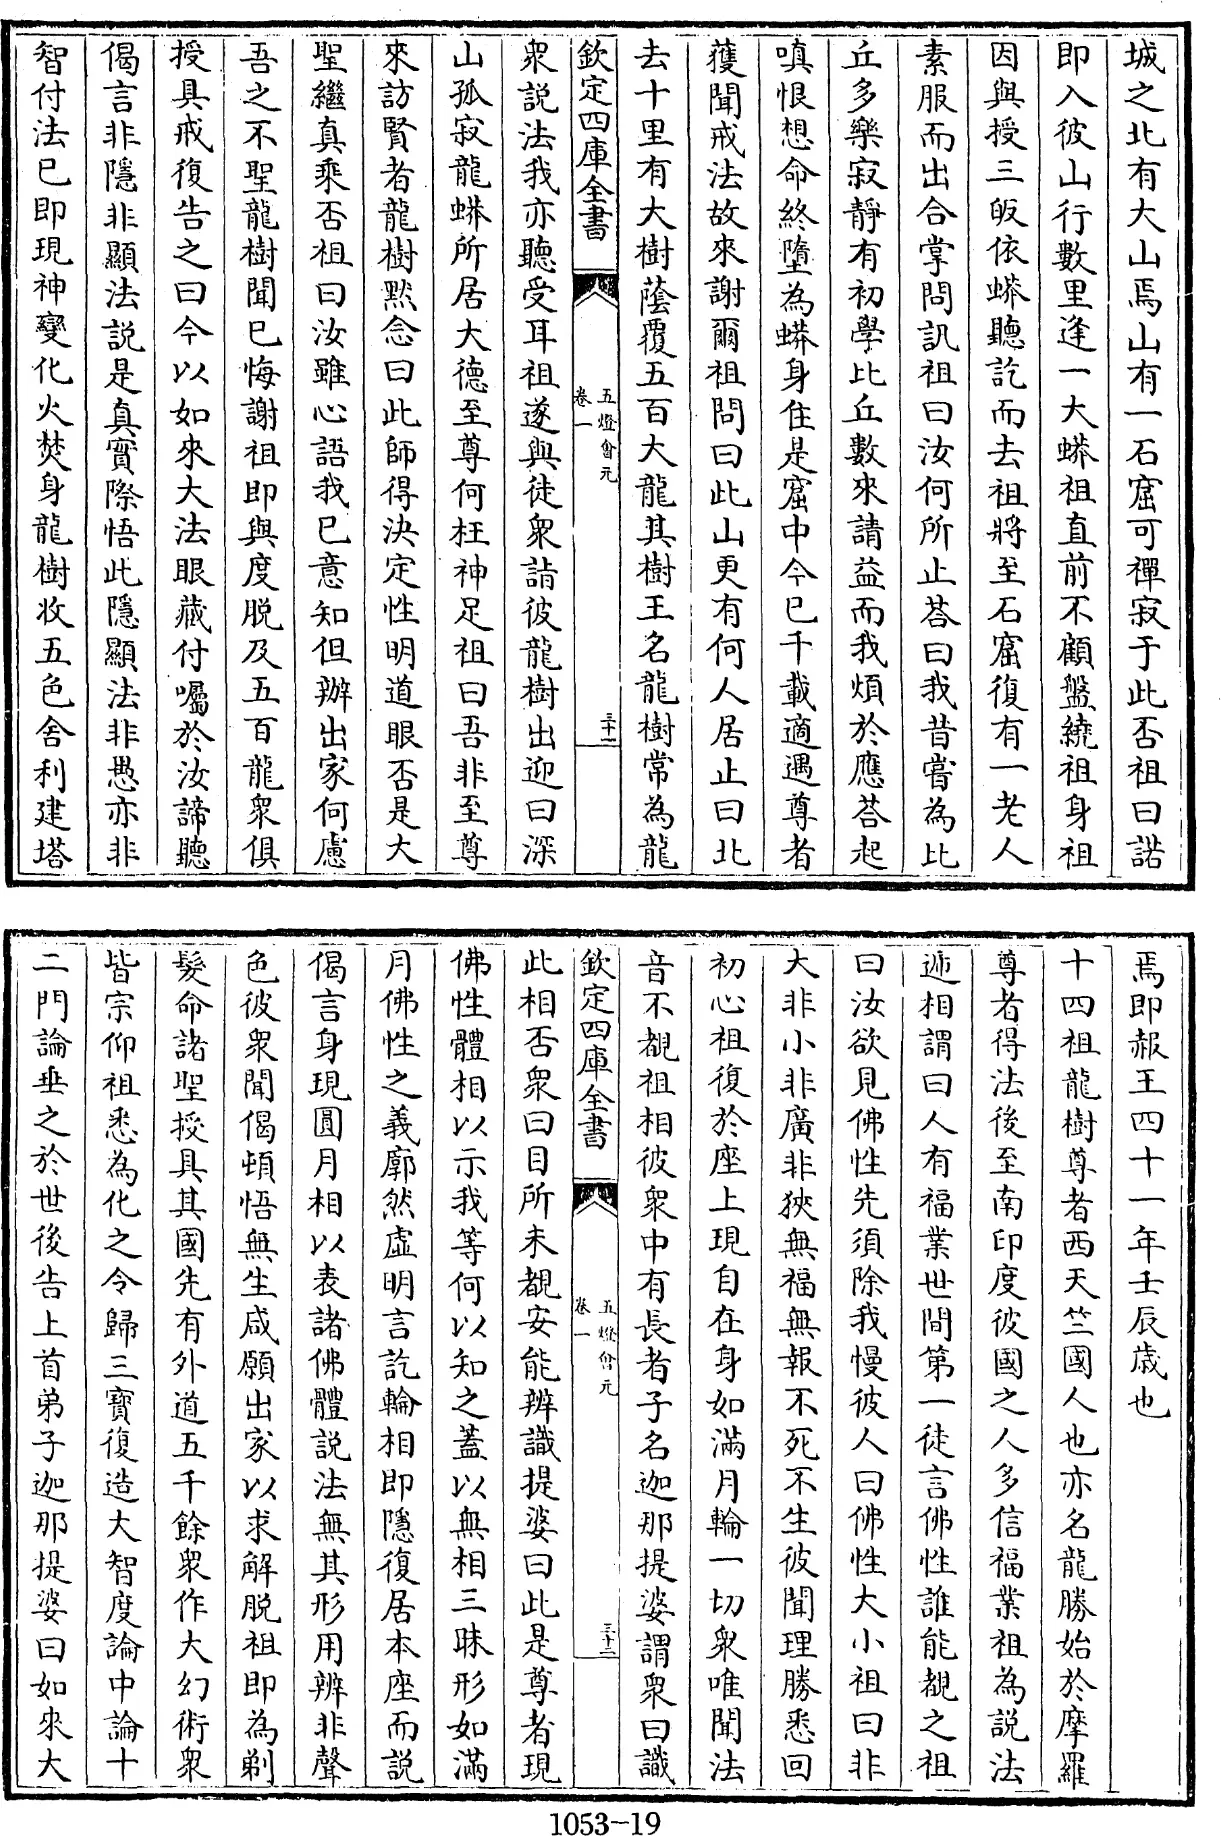 城之北有大山焉山有一石窟可禪寂于此否祖曰諾
即入彼山行數里逢一大蟒祖直前不顧盤繞祖身祖
因與授三皈依蟒聽訖而去祖將至石窟復有一老人
素服而出合掌問訊祖曰汝何所止荅曰我昔嘗為比
丘多樂寂靜有初學比丘數來請益而我煩於應荅起
嗔恨想命終墮為蟒身住是窟中今已千載適遇尊者
獲聞戒法故來謝爾祖問曰此山更有何人居止曰北
去十里有大樹蔭覆五百大龍其樹王名龍樹常為龍
欽定四庫全書
五燈會元
卷一
三十一
衆説法我亦聽受耳祖遂與徒衆詣彼龍樹出迎曰深
山孤寂龍蟒所居大德至尊何枉神足祖曰吾非至尊
來訪賢者龍樹默念曰此師得決定性明道眼否是大
聖繼真乘否祖曰汝雖心語我已意知但辦出家何慮
吾之不聖龍樹聞已悔謝祖即與度脱及五百龍衆俱
授具戒復告之曰今以如來大法眼藏付囑於汝諦聽
偈言非隱非顯法説是真實際悟此隱顯法非愚亦非
智付法已即現神變化火焚身龍樹收五色舍利建塔
焉即赧王四十一年壬辰歲也
十四祖龍樹尊者西天竺國人也亦名龍勝始於摩羅
尊者得法後至南印度彼國之人多信福業祖為説法
遞相謂曰人有福業世間第一徒言佛性誰能覩之祖
曰汝欲見佛性先須除我慢彼人曰佛性大小祖曰非
大非小非廣非狹無福無報不死不生彼聞理勝悉回
初心祖復於座上現自在身如滿月輪一切衆唯聞法
音不覩祖相彼衆中有長者子名迦那提婆謂衆曰識
欽定四庫全書
五燈會元
卷一
三十二
此相否衆曰目所未覩安能辨識提婆曰此是尊者現
佛性體相以示我等何以知之蓋以無相三昧形如滿
月佛性之義廓然虛明言訖輪相即隱復居本座而説
偈言身現圓月相以表諸佛體説法無其形用辨非聲
色彼衆聞偈頓悟無生咸願出家以求解脱祖即為剃
髮命諸聖授具其國先有外道五千餘衆作大幻術衆
皆宗仰祖悉為化之令歸三寶復造大智度論中論十
二門論垂之於世後告上首弟子迦那提婆曰如來大
1053-19